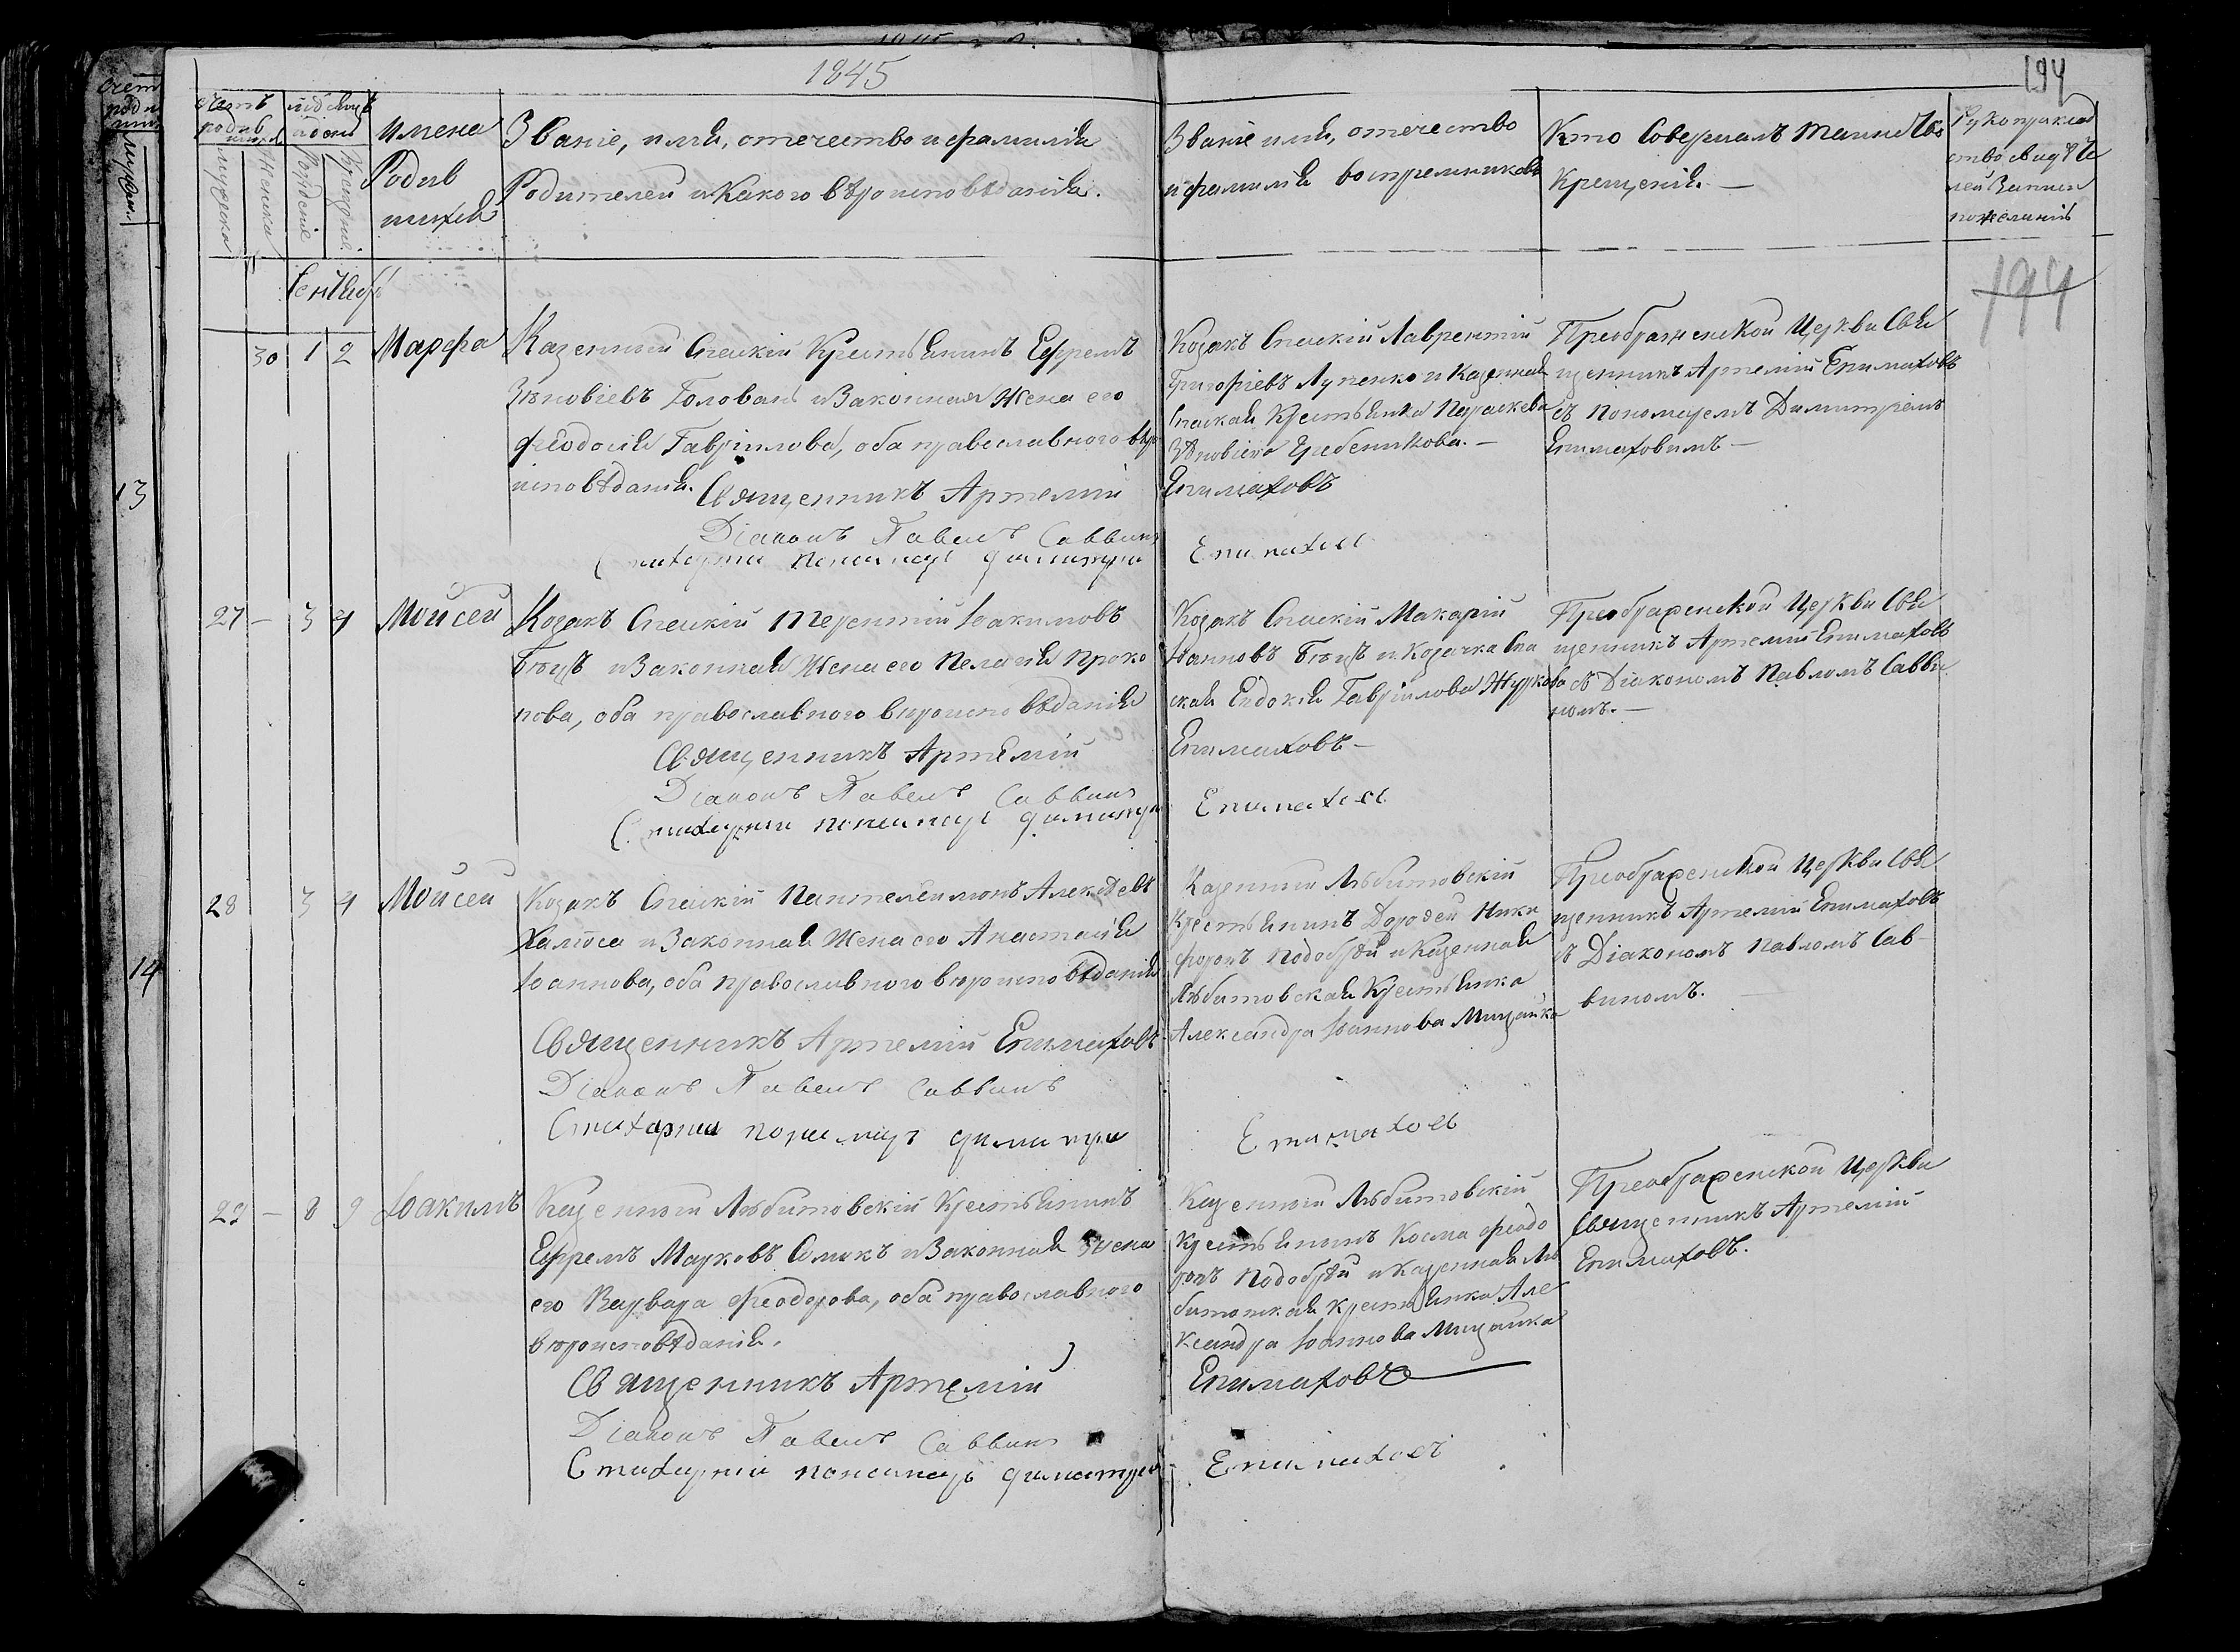 1845
194
счетъ
родив
шихся
мужска
женска
мѣсяцъ
и день
рожденіе
крещеніе
Имена
Родив
шихся
Званіе, имя, отечество и фамилія
Родителей и какого вѣроисповѣданія.
Званіе имя, отечество
и фамилія воспріемниковъ
Кто Совершалъ таинство
Крещенія. —
Рукоприклад
ство свидѣте
лей Записи
по желанію
194
Сентябрь
30 1 2 Марфа
Казенный Спаскій Крестьянинъ Ефремъ
Зѣновіевъ Голованъ и Законная Жена его
Феодосія Гавріилова, оба православного вѣро
исповѣданія.
Священникъ Артемій
Діаконъ Павелъ Саввинъ
Стихарный пономарь Димитрій
Козакъ Спаскій Лаврентій
Григоріевъ Лупенко и Казенная
Спаская Крестьянка Параскева
Зѣновіева Гребеникова. —
Епимаховъ
Епимаховъ
Преображенской Церкви Свя
щенникъ Артемій Епимаховъ
съ Пономаремъ Димитріемъ
Епимаховимъ —
13
27 — 3 4 Мойсей
Козакъ Спаскій Терентій Іоакимовъ
и Законная Жена его Пелагія Проко
пова, оба православного вѣроисповѣданія
Священникъ Артемій
Діаконъ Павелъ Саввинъ
Стихарный пономарь Димитрій
Козакъ Спаскій Макарій
Іоанновъ и Козачка Спа
ская Евдокія Гавріилова Журкова
Епимаховъ —
Епимаховъ
Преображенской Церкви Свя
щенникъ Артемій Епимаховъ
съ Діакономъ Павломъ Савви
номъ. —
28 3 4 Мойсей
Козакъ Спаскій Пантелеимонъ Алексѣевъ
и Законная Жена его Анастасія
Іоаннова, оба православного вѣроисповѣданія
Священникъ Артемій Епимаховъ
Діаконъ Павелъ Саввинъ
Стихарный пономарь Димитрій
Казенный Любитовскій
Крестьянинъ Дорофей Ники
форовъ Подобѣдъ и Казенная
Любитовская Крестьянка
Александра Іоаннова
Епимаховъ
Преображенской Церкви Свя
щенникъ Артемій Епимаховъ
съ Діакономъ Павломъ Сав-
виномъ. —
14
29 — 8 9 Іоакимъ
Казенный Любитовскій Крестьянинъ
Ефремъ Марковъ Сомокъ и Законная Жена
его Варвара Феодорова, оба православного
вѣроисповѣданія.
Священникъ Артемій
Діаконъ Павелъ Саввинъ
Стихарный пономарь Димитрій
Казенный Любитовскій
Крестьянинъ Косма Феодо
ровъ Подобѣдъ и Казенная Лю
битовская крестьянка Але
ксандра Іоаннова
Епимаховъ
Епимаховъ
Преображенской Церкви
Священникъ Артемій
Епимаховъ.